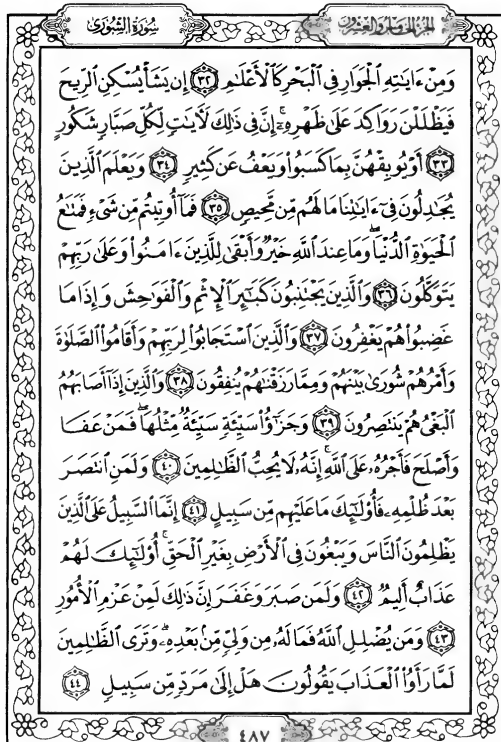 سُورَةُ الشُّورَىٰ
الجُزءُ الخَامِسُ وَالعِشْرُونَ
وَمِنْ ءَايَٰتِهِ ٱلْجَوَارِ فِى ٱلْبَحْرِ كَٱلْأَعْلَٰمِ ٣٢ إِن يَشَأْ يُسْكِنِ ٱلرِّيحَ
فَيَظْلَلْنَ رَوَاكِدَ عَلَىٰ ظَهْرِهِۦٓ ۚ إِنَّ فِى ذَٰلِكَ لَـَٔايَٰتٍ لِّكُلِّ صَبَّارٍ شَكُورٍ
٣٣ أَوْ يُوبِقْهُنَّ بِمَا كَسَبُوا۟ وَيَعْفُ عَن كَثِيرٍ ٣٤ وَيَعْلَمَ ٱلَّذِينَ
يُجَٰدِلُونَ فِىٓ ءَايَٰتِنَا مَا لَهُم مِّن مَّحِيصٍ ٣٥ فَمَآ أُوتِيتُم مِّن شَىْءٍ فَمَتَٰعُ
ٱلْحَيَوٰةِ ٱلدُّنْيَا ۖ وَمَا عِندَ ٱللَّهِ خَيْرٌ وَأَبْقَىٰ لِلَّذِينَ ءَامَنُوا۟ وَعَلَىٰ رَبِّهِمْ
يَتَوَكَّلُونَ ٣٦ وَٱلَّذِينَ يَجْتَنِبُونَ كَبَٰٓئِرَ ٱلْإِثْمِ وَٱلْفَوَٰحِشَ وَإِذَا مَا
غَضِبُوا۟ هُمْ يَغْفِرُونَ ٣٧ وَٱلَّذِينَ ٱسْتَجَابُوا۟ لِرَبِّهِمْ وَأَقَامُوا۟ ٱلصَّلَوٰةَ
وَأَمْرُهُمْ شُورَىٰ بَيْنَهُمْ وَمِمَّا رَزَقْنَٰهُمْ يُنفِقُونَ ٣٨ وَٱلَّذِينَ إِذَآ أَصَابَهُمُ
ٱلْبَغْىُ هُمْ يَنتَصِرُونَ ٣٩ وَجَزَٰٓؤُا۟ سَيِّئَةٍ سَيِّئَةٌ مِّثْلُهَا ۖ فَمَنْ عَفَا
وَأَصْلَحَ فَأَجْرُهُۥ عَلَى ٱللَّهِ ۚ إِنَّهُۥ لَا يُحِبُّ ٱلظَّٰلِمِينَ ٤٠ وَلَمَنِ ٱنتَصَرَ
بَعْدَ ظُلْمِهِۦ فَأُو۟لَٰٓئِكَ مَا عَلَيْهِم مِّن سَبِيلٍ ٤١ إِنَّمَا ٱلسَّبِيلُ عَلَى ٱلَّذِينَ
يَظْلِمُونَ ٱلنَّاسَ وَيَبْغُونَ فِى ٱلْأَرْضِ بِغَيْرِ ٱلْحَقِّ ۚ أُو۟لَٰٓئِكَ لَهُمْ
عَذَابٌ أَلِيمٌ ٤٢ وَلَمَن صَبَرَ وَغَفَرَ إِنَّ ذَٰلِكَ لَمِنْ عَزْمِ ٱلْأُمُورِ
٤٣ وَمَن يُضْلِلِ ٱللَّهُ فَمَا لَهُۥ مِن وَلِىٍّ مِّنۢ بَعْدِهِۦ ۗ وَتَرَى ٱلظَّٰلِمِينَ
لَمَّا رَأَوُا۟ ٱلْعَذَابَ يَقُولُونَ هَلْ إِلَىٰ مَرَدٍّ مِّن سَبِيلٍ ٤٤
٤٨٧